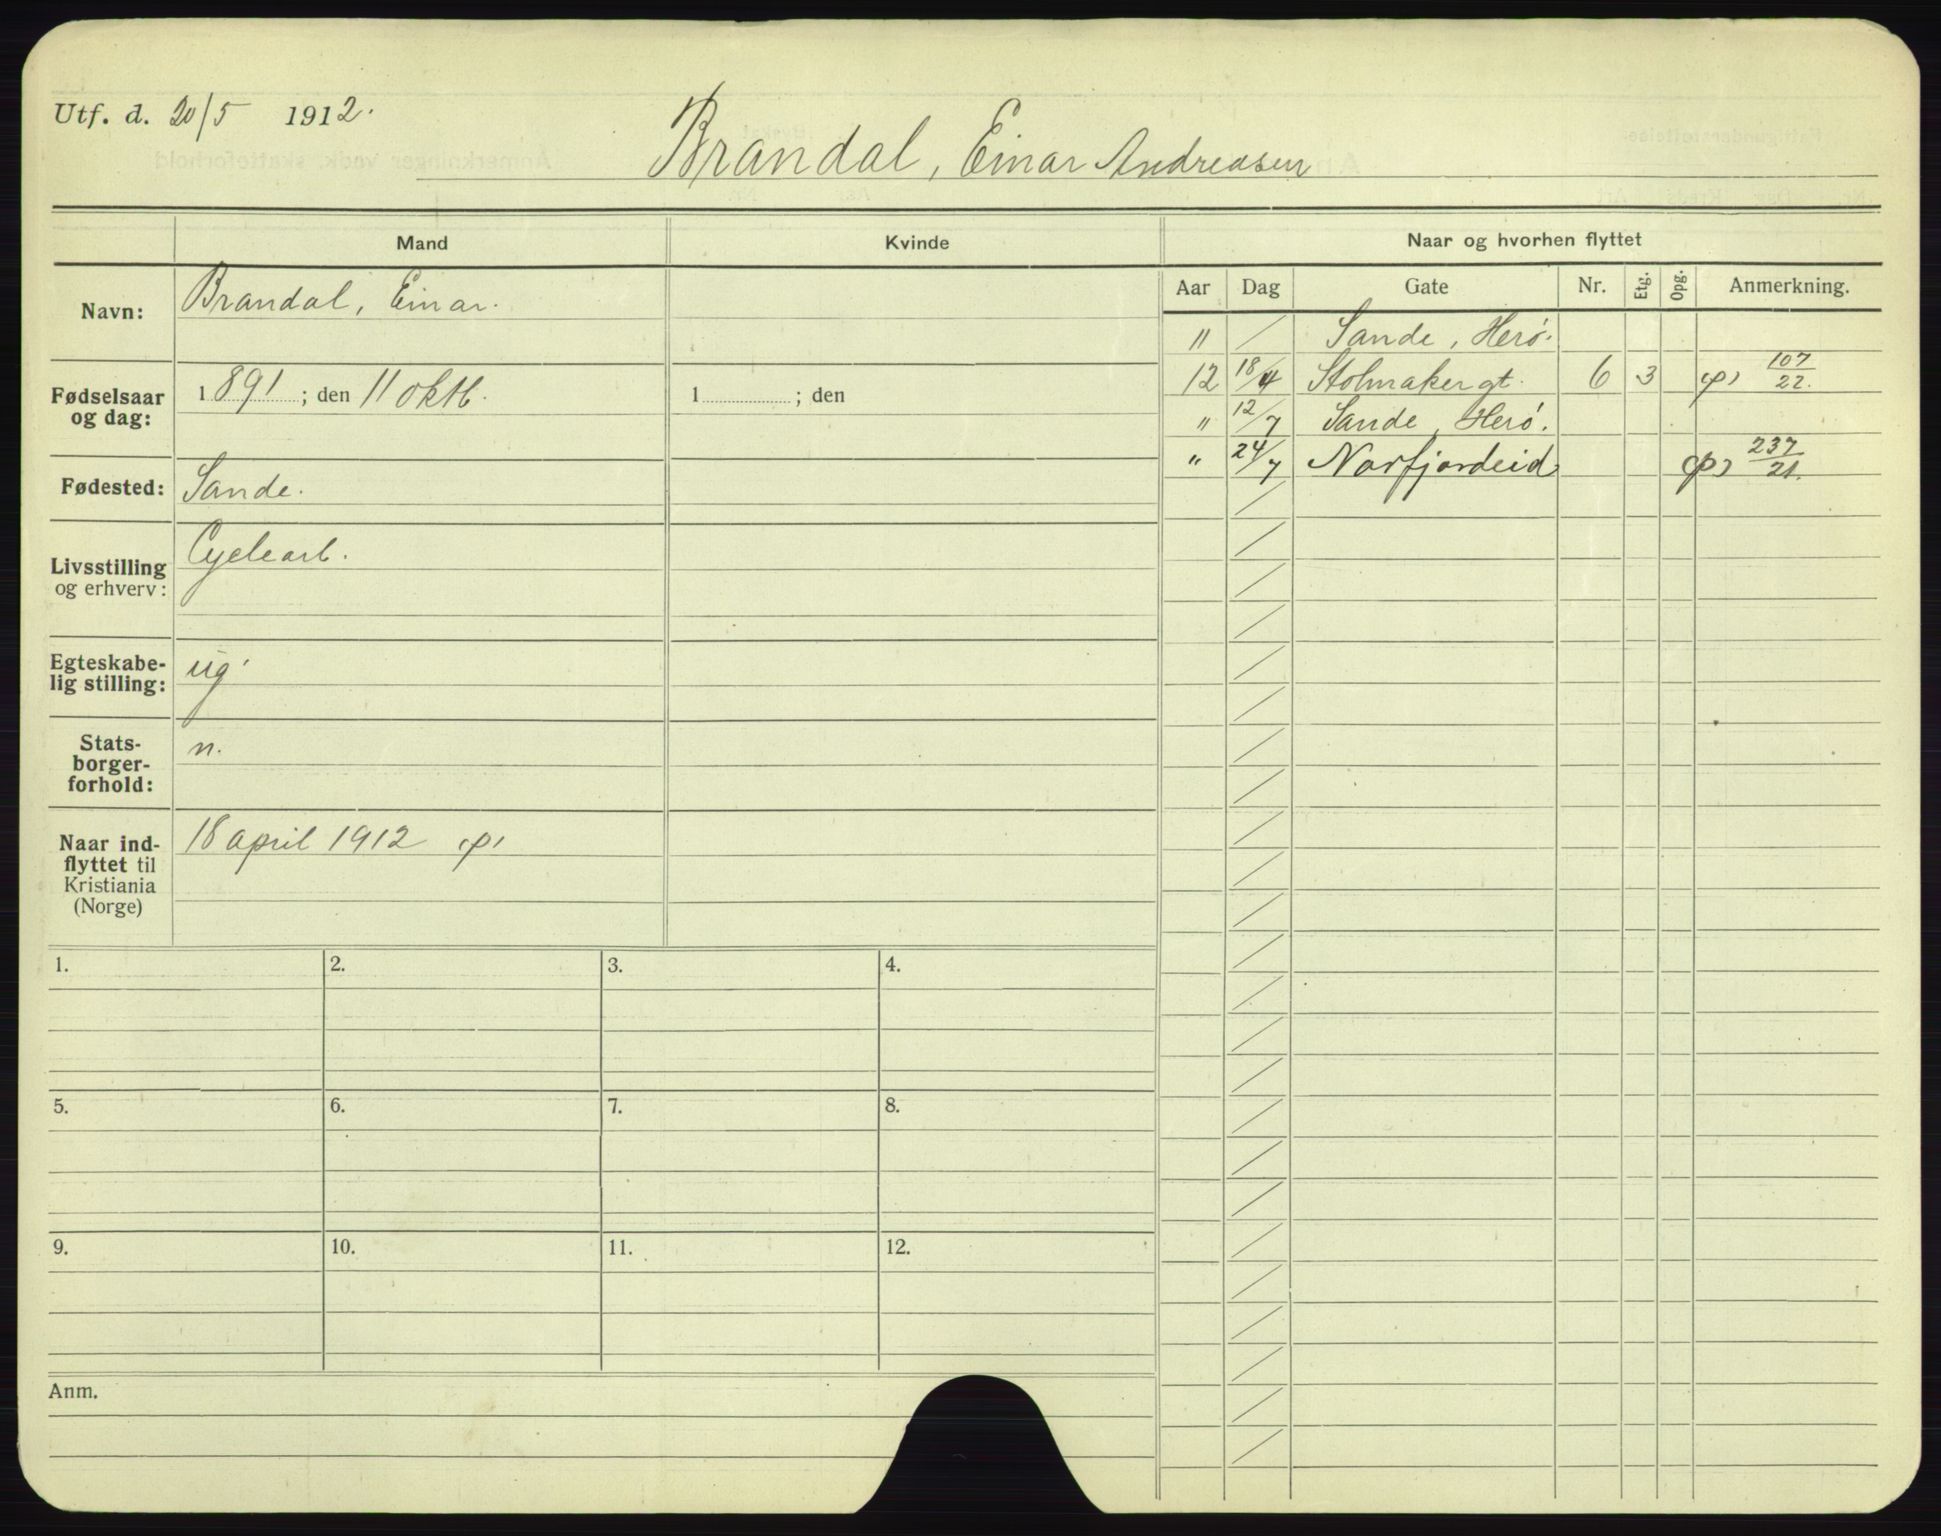 Utf. d. 20/5 1912.
Brandal, Einar Andreasen
Mand
Kvinde
Naar og hvorhen flyttet
Navn:
Brandal, Einar.
Fødselsaar og dag:
1891; den 11 oktb.
1 ; den
Fødested:
Sande.
Livsstilling
og erhverv:
Cyclearb.
Egteskabe-
lig stilling:
ug.
Stats-
borger-
forhold:
n.
Naar ind-
flyttet til
Kristiania
(Norge)
18 april 1912 (p)
Aar Dag Gate Nr. Etg. Opg. Anmerkning.
" / Sande, Herø.
12 18/4 Stolmakergt. 6 3 (p) 107/22.
" 12/7 Sande, Herø.
" 24/7 Norfjordeid (p) 237/21.
1. 2. 3. 4.
5. 6. 7. 8.
9. 10. 11. 12.
Anm.